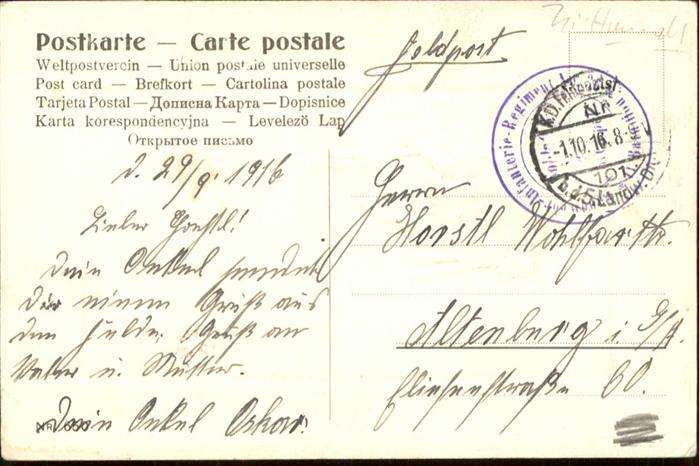 Postkarte — Carte postale
Weltpostverein — Union postale universelle
Post card — Brefkort — Cartolina postale
Tarjeta Postal — Дописна Карта — Dopisnice
Karta korespondencyjna — Levelező Lap
Открытое письмо
Feldpost
d. 29/9. 1916
Lieber Horstl!
Dein Onkel sendet
Dir einen Gruß aus
dem Felde. Gruß an
Vater u. Mutter.
Dein Onkel Oskar.
Infanterie-Regiment
K.D. Feldpostexp.
Nr
-1.10.16. 8-9
101
b.d. 5. Landw. Div.
Herrn
Horstl Wohlfarth.
Altenburg i. S/A.
Elisenstraße 60.